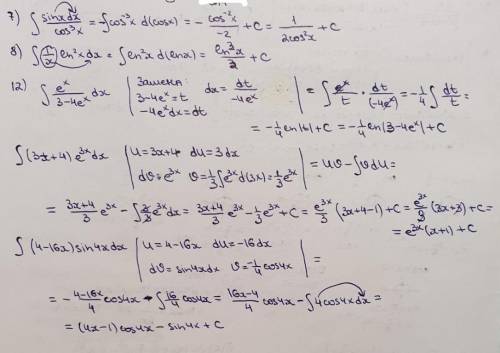 7) ∫ sinx dx / cos³x = -∫cos⁻³x d(cosx) = - cos⁻²x / -2 + C = 1 / 2cos²x + C
8) ∫ (1/x) ln²x dx = ∫ln²x d(lnx) = ln³x / 3 + C
12) ∫ eˣ / 3-4eˣ dx | Замена: 3-4eˣ=t -4eˣdx=dt dx = dt / -4eˣ | = ∫ eˣ/t · dt/(-4eˣ) = -1/4 ∫ dt/t =
= -1/4 ln|t| + C = -1/4 ln|3-4eˣ| + C
∫(3x+4) e³ˣ dx | u=3x+4 du=3dx dv=e³ˣ v=1/3∫e³ˣd(3x)=1/3 e³ˣ | = uv - ∫vdu =
= 3x+4 / 3 e³ˣ - ∫3/3 e³ˣdx = 3x+4 / 3 e³ˣ - 1/3 e³ˣ + C = e³ˣ/3 (3x+4-1) + C = e³ˣ/3 (3x+3) + C =
= e³ˣ(x+1) + C
∫(4-16x) sin4x dx | u=4-16x du=-16dx dv=sin4xdx v=-1/4 cos4x | =
= - 4-16x / 4 cos4x - ∫16/4 cos4x = 16x-4 / 4 cos4x - ∫4cos4xdx =
= (4x-1)cos4x - sin4x + C